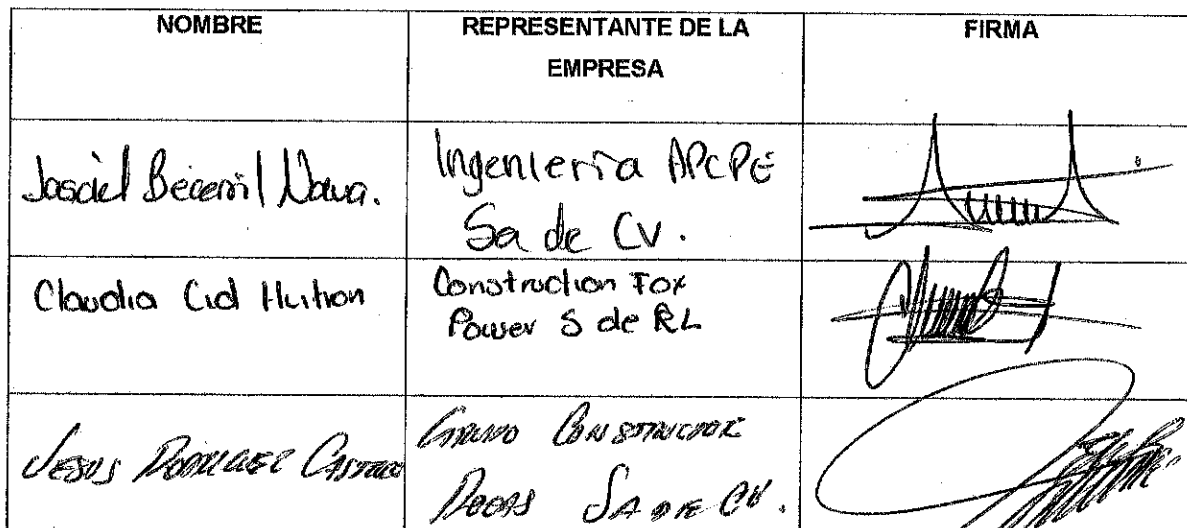 NOMBRE
REPRESENTANTE DE LA
EMPRESA
FIRMA
Jasciel Becerril Nava.
Ingenieria APCPE
Sa de CV.
Claudia Cid Huitron
Construction Fox
Power S de RL
JESUS RODRIGUEZ CASTRO
GRUPO CONSTRUCTOR
SA DE CV.